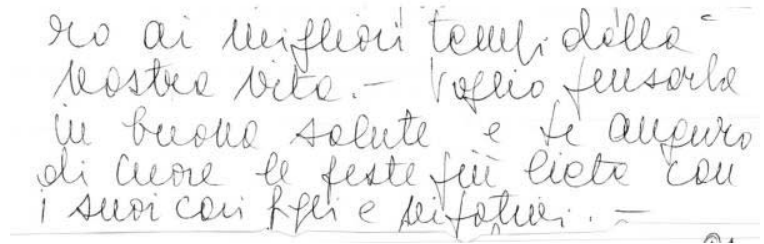 ro ai migliori tempi della
nostra vita. - Voglio pensarla
in buona salute e le auguro
di cuore le feste più liete con
i suoi cari figli e nipotini. -